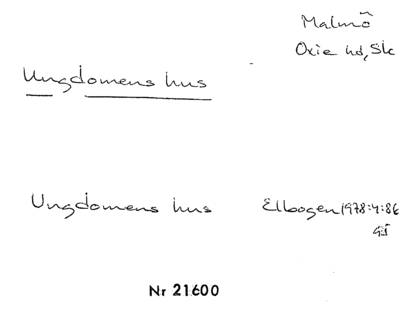 Malmö
Oxie hd, Sk
Ungdomens hus
Ungdomens hus Elbogen 1978:4:86
GJ
Nr 21600